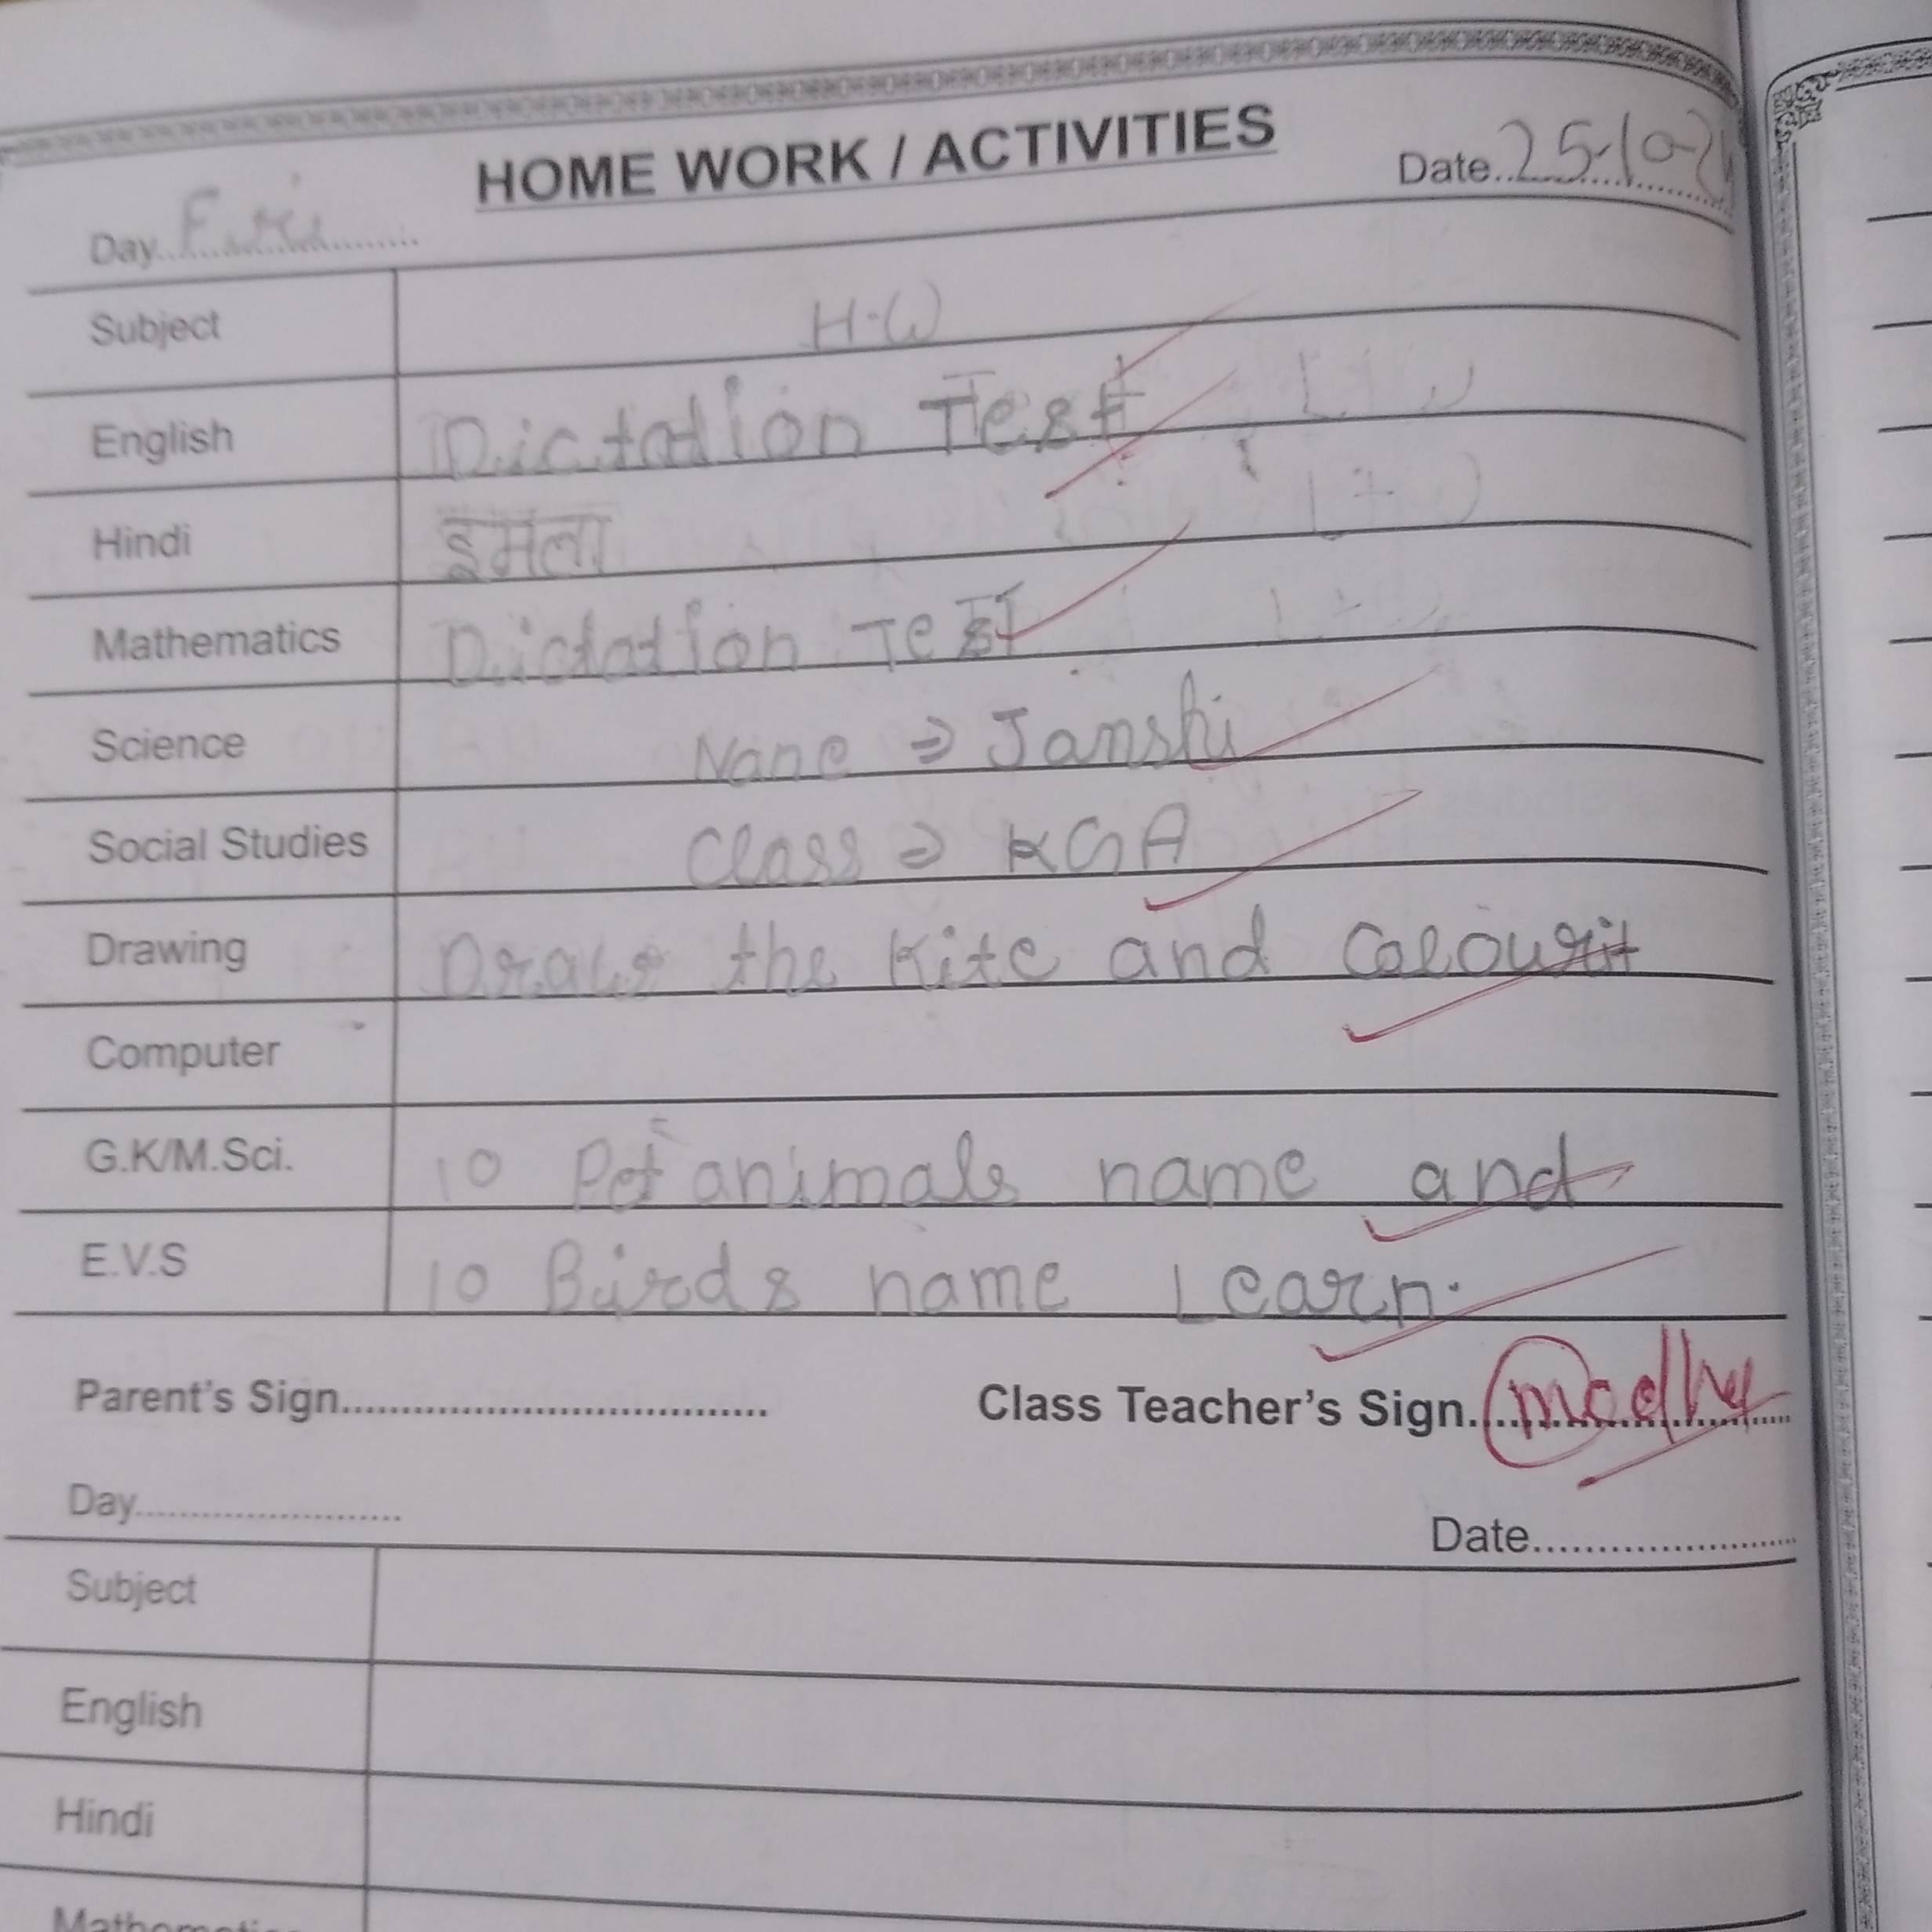 HOME WORK / ACTIVITIES
Day Fri Date 25-10-24
Subject H.W
English Dictation Test
Hindi इमला
Mathematics Dictation Test
Science Nane ⇒ Janshi
Social Studies Class ⇒ KGA
Drawing Draw the Kite and Colourit
Computer
G.K/M.Sci. 10 Pet animals name and
E.V.S 10 Birds name Learn.
Parent's Sign Class Teacher's Sign
Day Date
Subject
English
Hindi